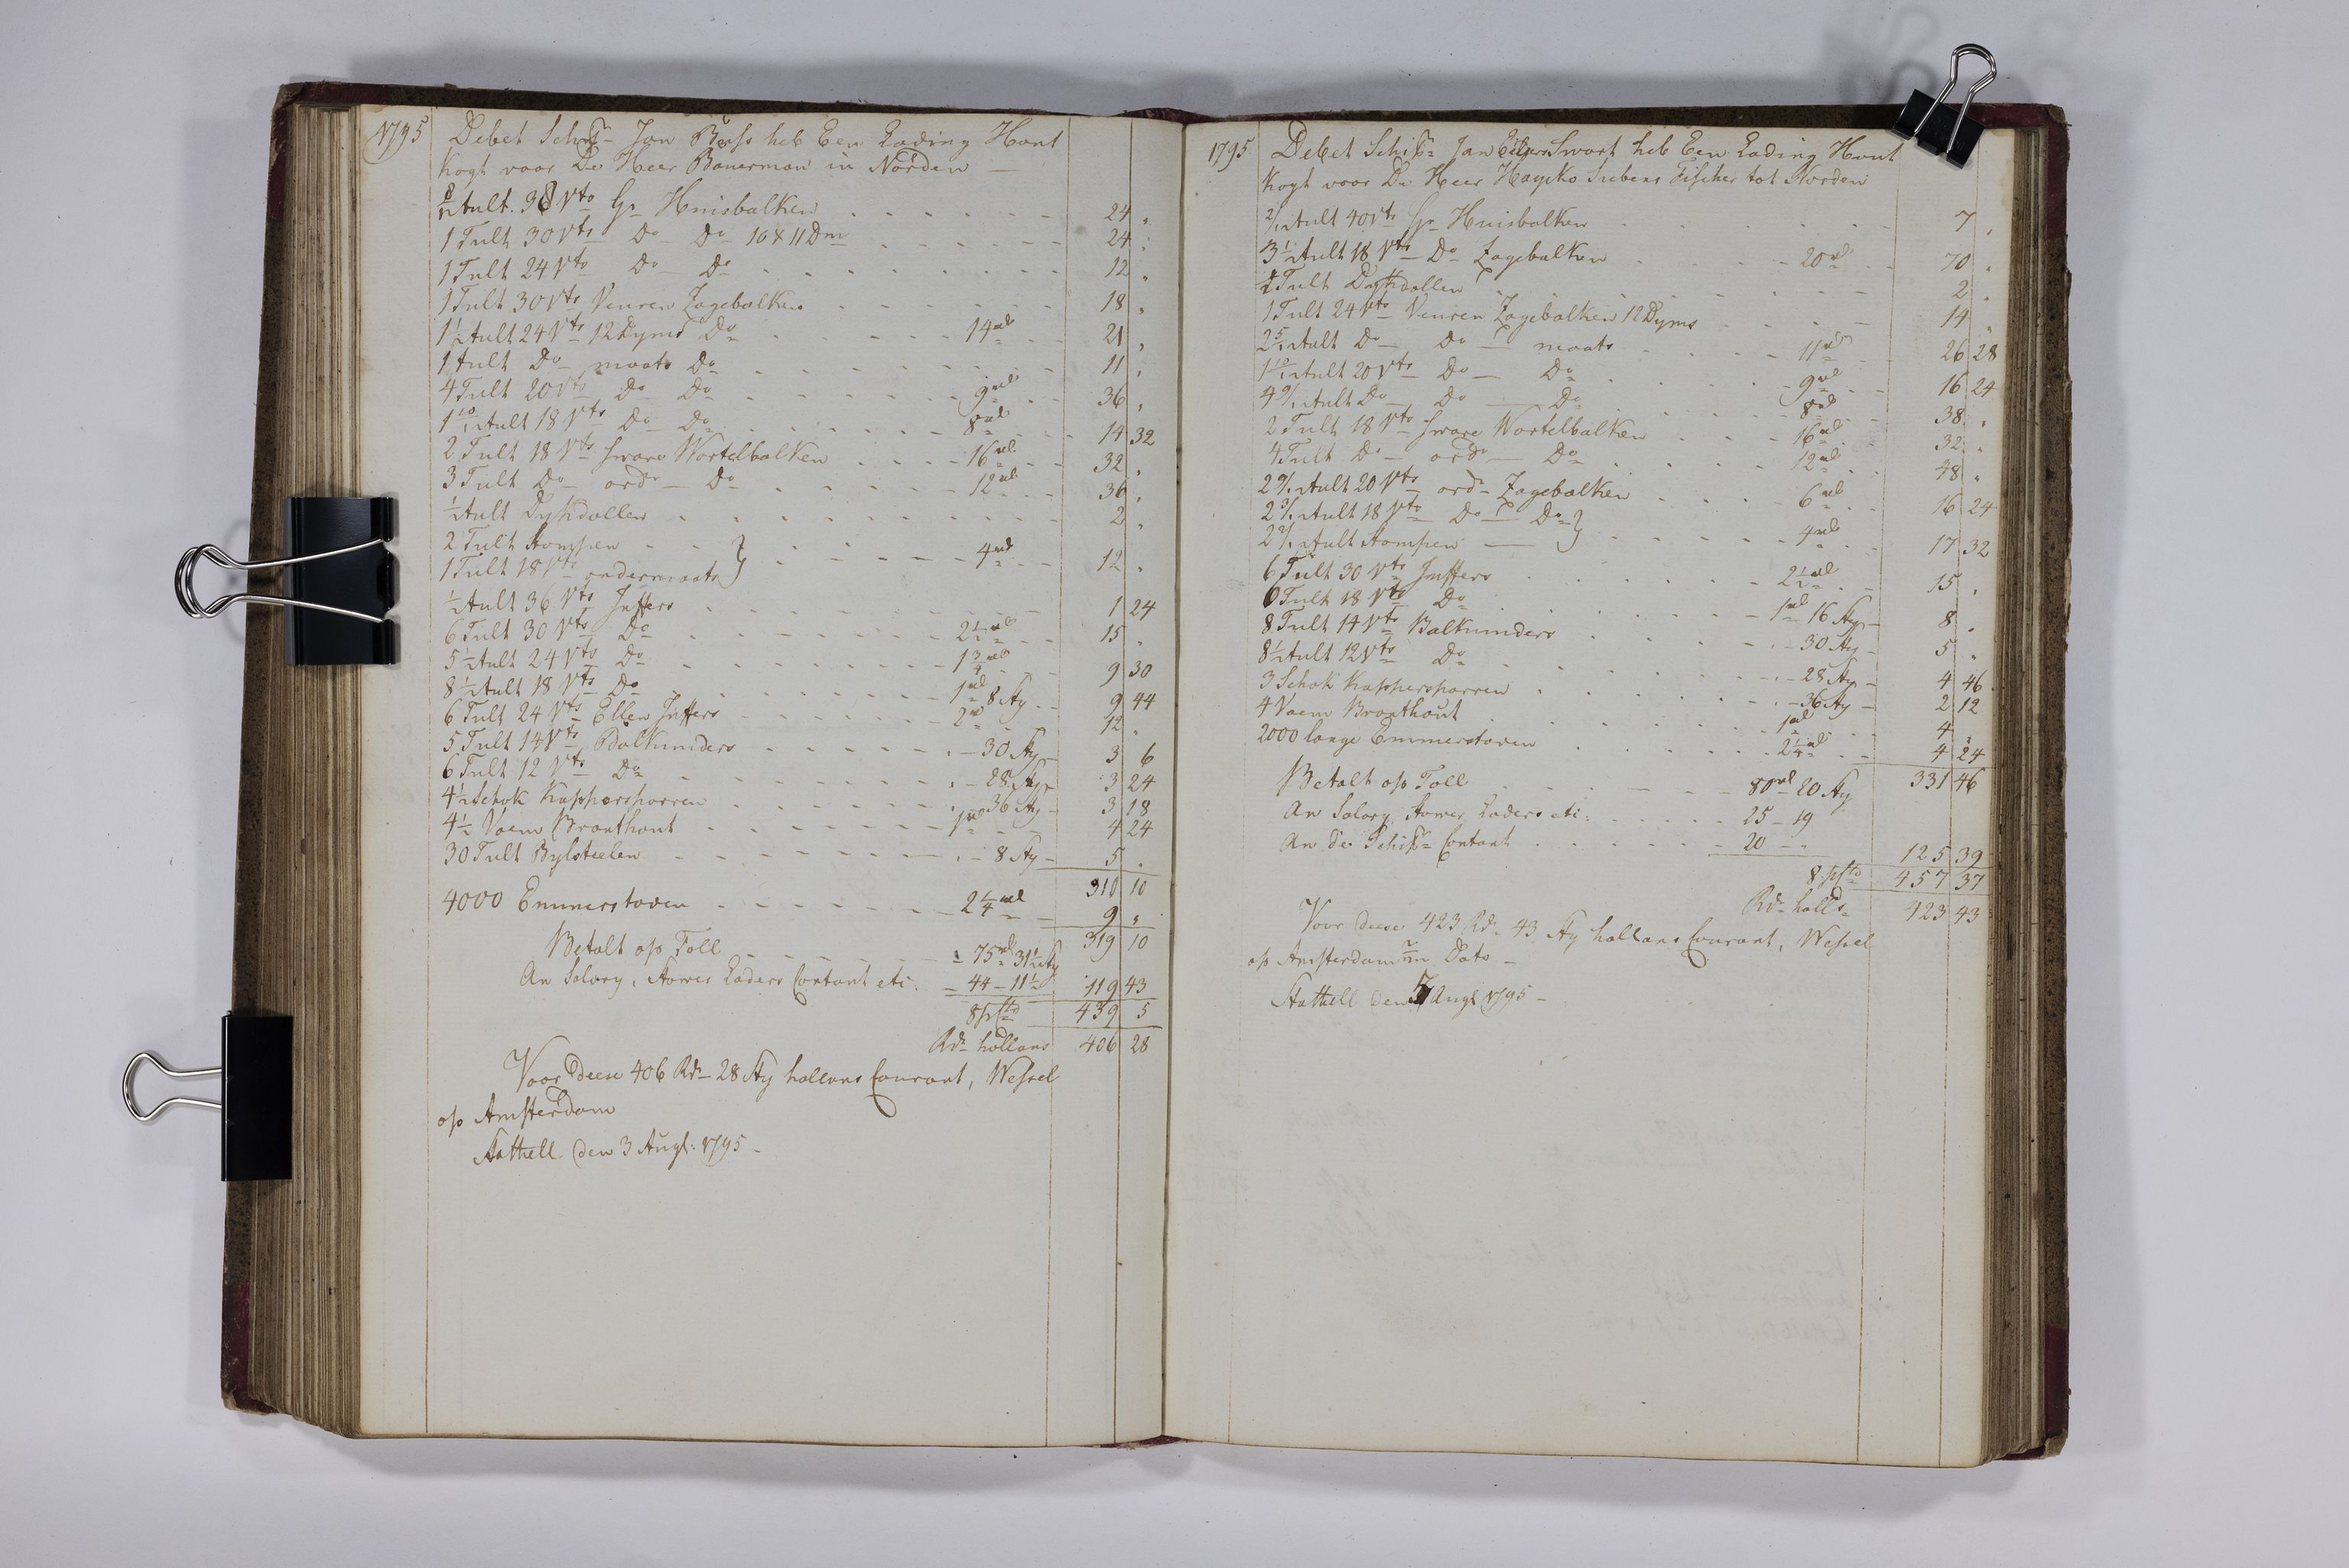 1795 Debet Schipr Jan Buss heb Een Lading Hout
kogt voor De Heer Bauerman in Norden
8/12 Tult 38 Vts Gr Huisbalken 24 "
1 Tult 30 Vts Do Do 10 & 11 Dm 24 "
1 Tult 24 Vts Do Do 12 "
1 Tult 30 Vts Veuren Zagebalken 18 "
1½ Tult 24 Vts 12 Dyms Do 14rd 21 "
1 Tult Do maats Do 11 "
4 Tult 20 Vts Do Do 9rd 36 "
1 10/12 Tult 18 Vts Do Do 8rd 14 32
2 Tult 18 Vts sware Wortelbalken 16rd 32 "
3 Tult Do ordr Do 12rd 36 "
½ Tult Dykdollen 2 "
2 Tult Stompen }
1 Tult 18 Vts ondermaats } 4rd 12 "
½ Tult 36 Vts Juffers 1 24
6 Tult 30 Vts Do 2½rd 15 "
5½ Tult 24 Vts Do 1¾rd 9 30
8½ Tult 18 Vts Do 1rd 8 Sty 9 44
6 Tult 24 Vts Ellen Juffers 2rd 12 "
5 Tult 14 Vts Balkunders 30 Sty 3 6
6 Tult 12 Vts Do 28 Sty 3 24
4½ Schok Kappersporren 36 Sty 3 18
4½ Vaem Branthout 1rd 4 24
30 Tult Bylsteelen 8 Sty 5 "
310 10
4000 Emmerstaven 2¼rd 9 "
319 10
Betalt op Toll 75rd 31½ Sty
An Salary, Stower Laders Contant etc: 44 - 11½ 119 43
8 pCto 439 5
Rdr hollans 406 28
Voor deese 406 Rdr 28 Sty hollans Courant, Wessel
op Amsterdam
Stathell den 3 Augt: 1795
1795 Debet Schipr Jan Eilers Swart heb Een Lading Hout
kogt voor De Heer Hayeko Siebens Fischer tot Norden
2/12 Tult 40 Vts Gr Huisbalken 7 "
3½ Tult 18 Vts Do Zagebalken 20rd 70 "
½ Tult Dykdollen 2 "
1 Tult 24 Vts Veuren Zagebalken 12 Dyms 14 "
2 5/12 Tult Do Do maats 11rd 26 28
1 10/12 Tult 20 Vts Do Do 9rd 16 24
4 9/12 Tult Do Do Do 8rd 38 "
2 Tult 18 Vts sware Wortelbalken 16rd 32 "
4 Tult Do ordr Do 12rd 48 "
2 9/12 Tult 20 Vts ordr Zagebalken 6rd 16 24
2 3/12 Tult 18 Vts Do Do }
2 2/12 Tult Stompen } 4rd 17 32
6 Tult 30 Vts Juffers 2½rd 15 "
6 Tult 18 Vts Do 1rd 16 Sty 8 "
8 Tult 14 Vts Balkunders 30 Sty 5 "
8½ Tult 12 Vts Do 28 Sty 4 46
3 Schok Kappersporren 36 Sty 2 12
4 Vaem Branthout 1rd 4 "
2000 lange Emmerstaven 2¼rd 4 24
331 46
Betalt op Toll 80rd 20 Sty
An Salary, Stower, Laders etc: 25 - 19
An de Schipr Contant 20 - " 125 39
8 pCto 457 37
Rdr holls 423 43
Voor deese 423 Rdr 43 Sty hollans Courant, Wessel
op Amsterdam Dato
Stathell den 5 Augt 1795